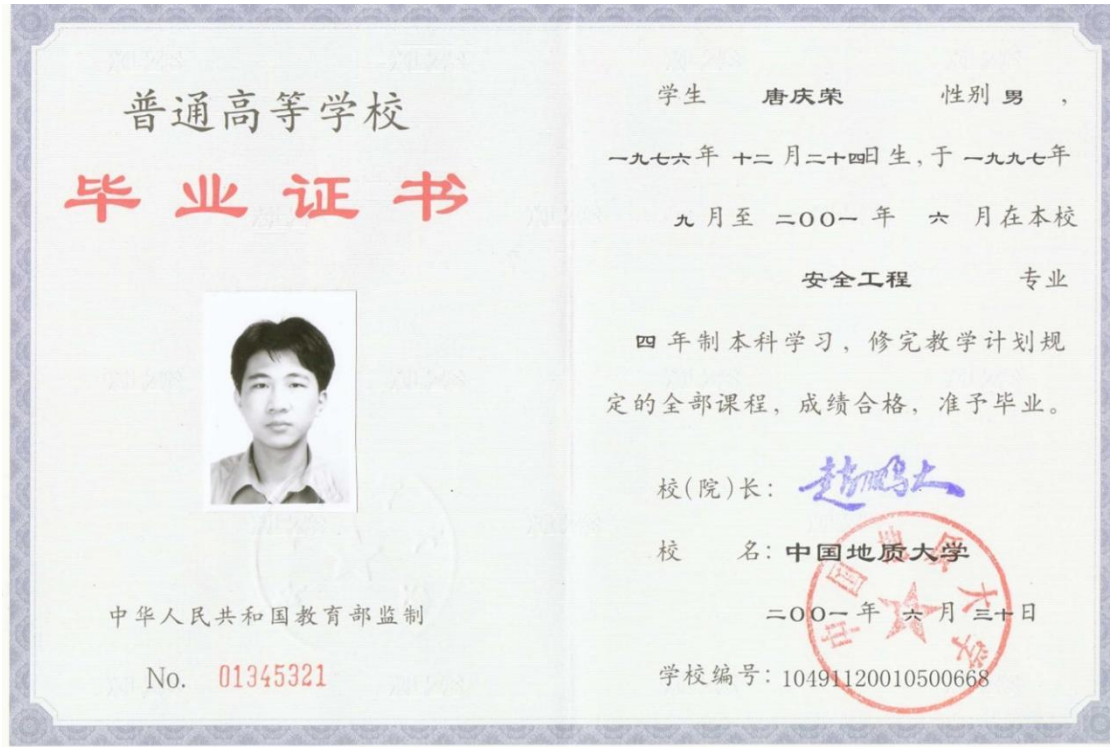 普通高等学校
毕业证书
中华人民共和国教育部监制
No. 01345321
学生 唐庆荣 性别 男 ，
一九七六年 十二月二十四日生，于 一九九七年
九月至 二〇〇一年 六 月在本校
安全工程 专业
四 年制本科学习，修完教学计划规
定的全部课程，成绩合格，准予毕业。
校(院)长：赵鹏大
校 名：中国地质大学
二〇〇一年 六 月 三十日
学校编号：104911200105000668
中国地质大学